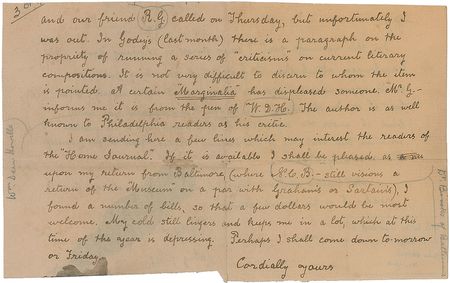 3 of
and our friend R.G. called on Thursday, but unfortunately I
was out. In Godeys (last month) there is a paragraph on the
propriety of running a series of "criticisms" on current literary
compositions. It is not very difficult to discern to whom the item
is pointed. A certain Marginalia has displeased someone. Mr G-
informs me it is from the pen of "W.D.H." The author is as well
known to Philadelphia readers as his critic.
I am sending here a few lines which may interest the readers of
the "Home Journal." If it is available I shall be pleased, as
upon my return from Baltimore, (where N.C.B. - still visions a
return of the Museum on a par with Graham's or Sartain's), I
found a number of bills, so that a few dollars would be most
welcome. My cold still lingers and keeps me in a lot, which at this
time of the year is depressing. Perhaps I shall come down to-morrow
or Friday.
Cordially yours
Wm Dean Howells
Dr Brooks of Baltimore